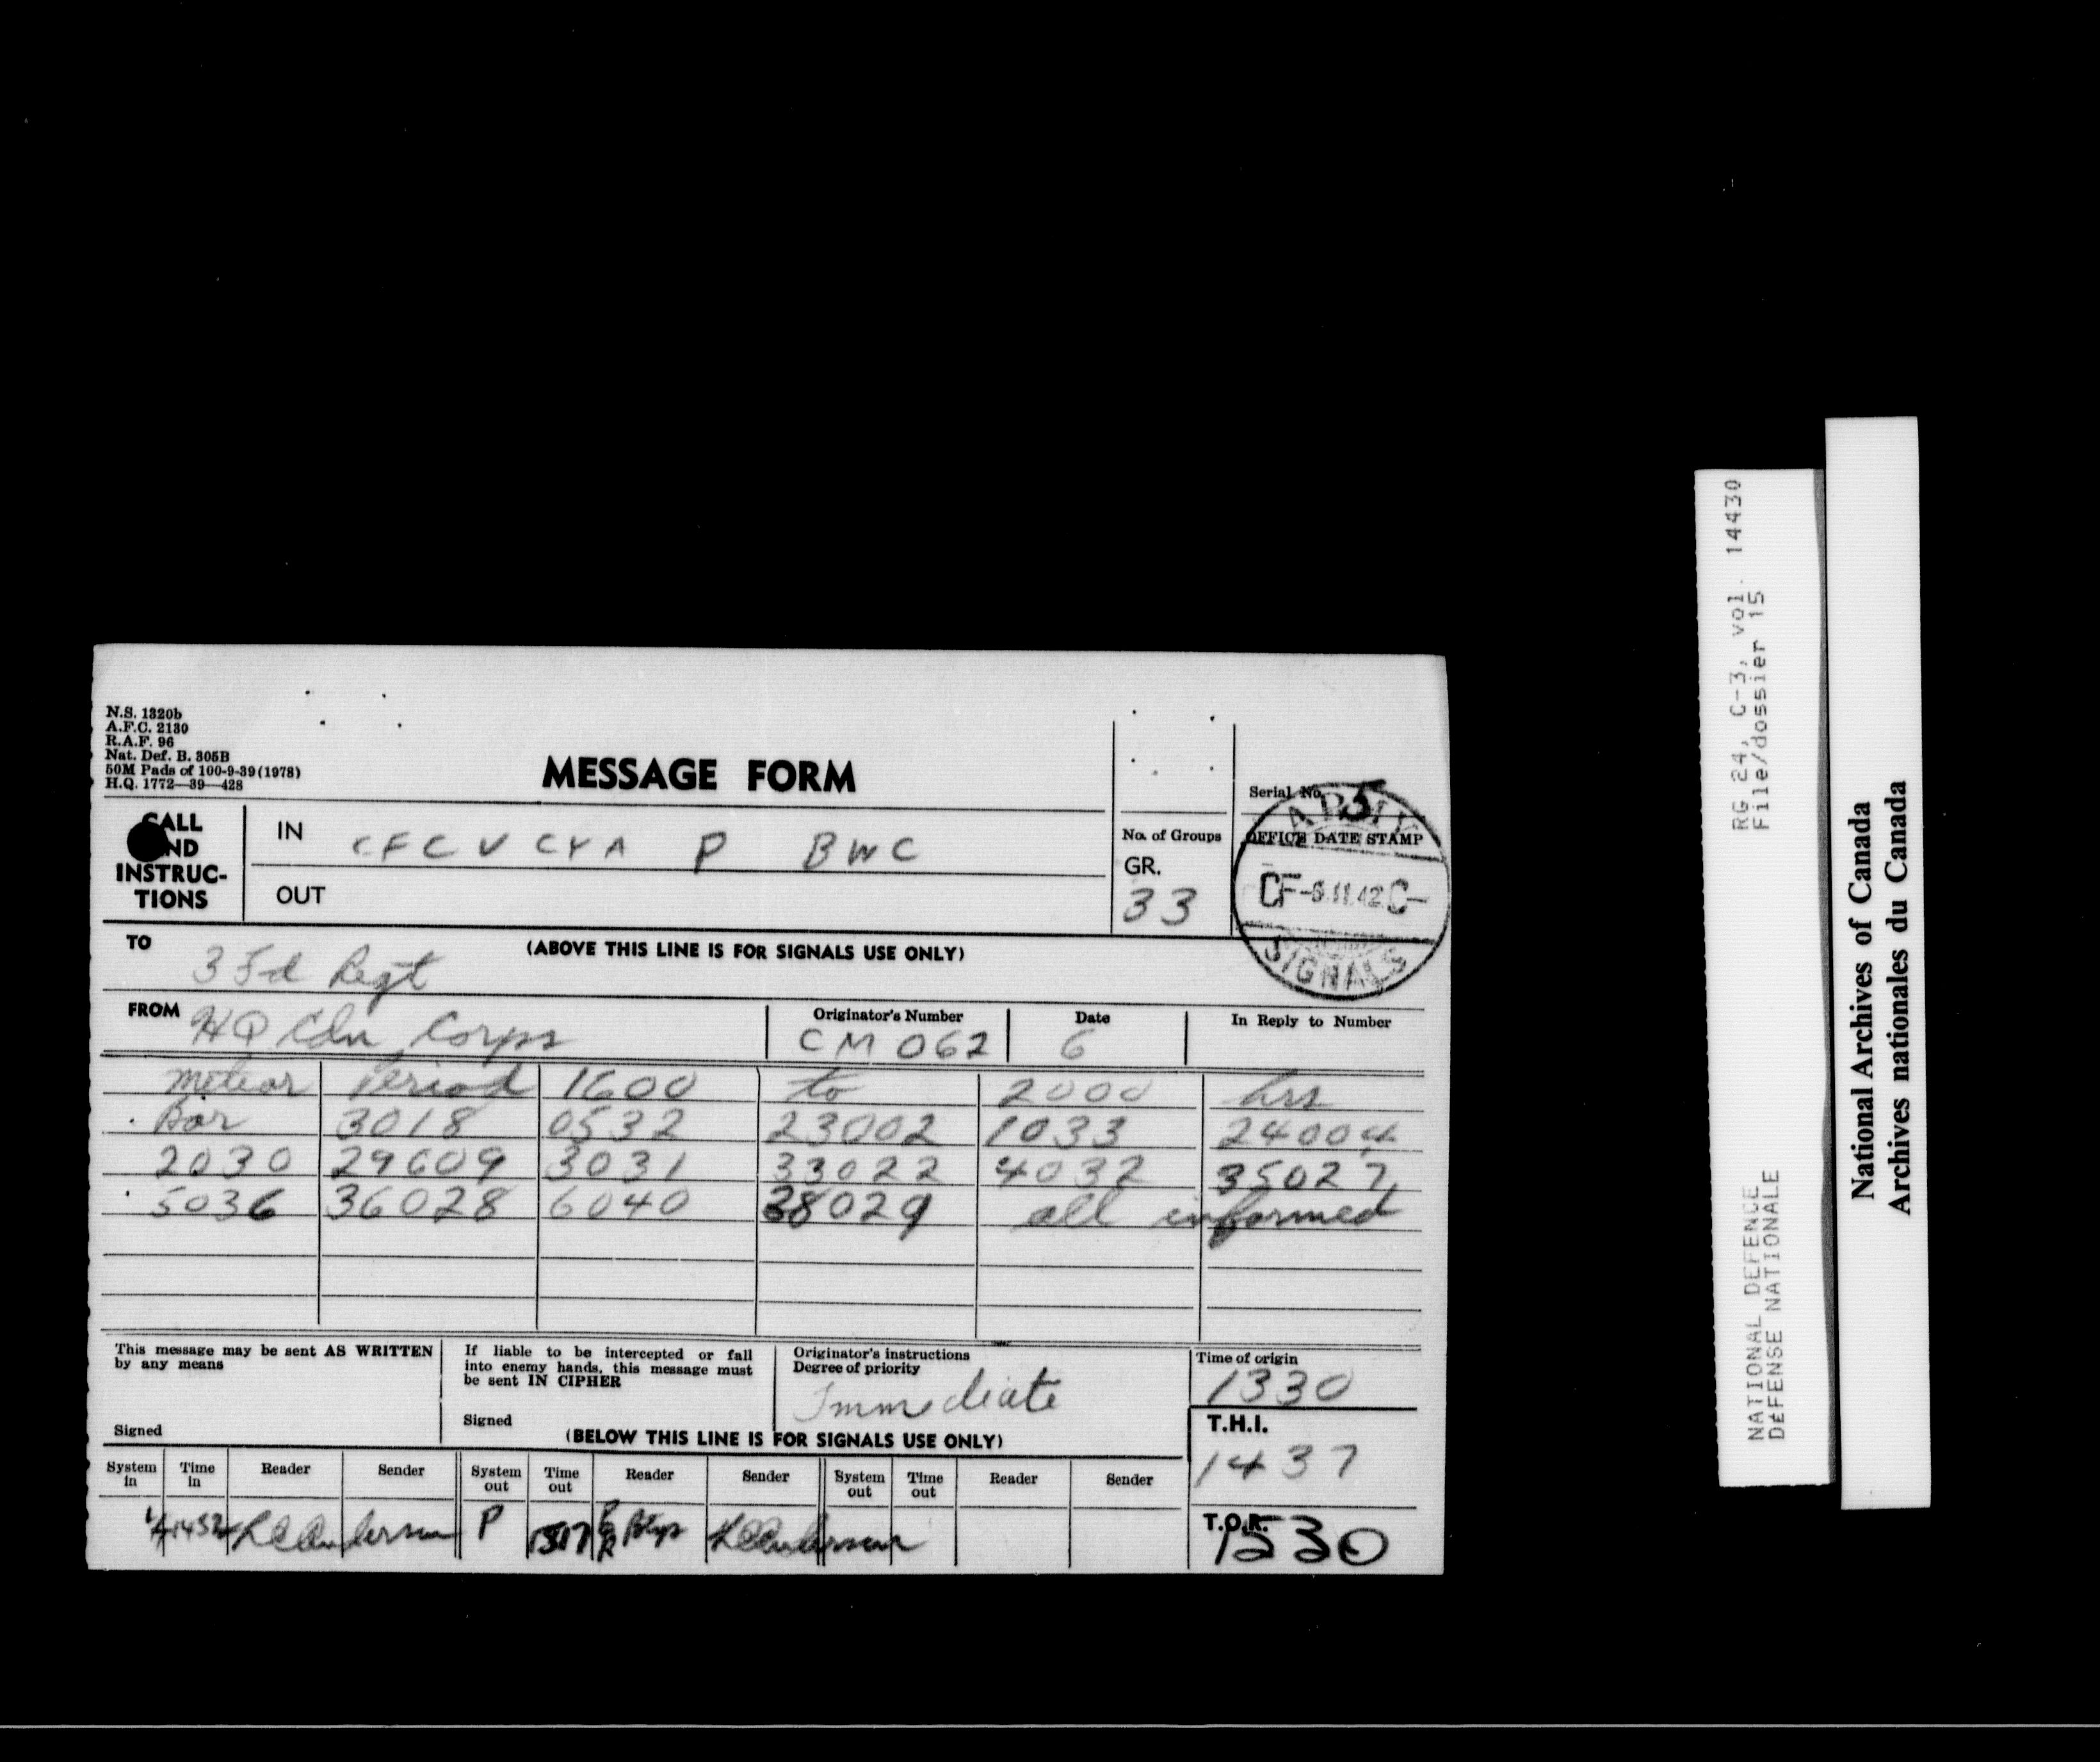 N.S. 1320b
A.F.C. 2130
R.A.F. 96
Nat. Def. B. 305B
50M Pads of 100-9-39 (1978)
H.Q. 1772—39—428
MESSAGE FORM
Serial No. 5
CALL AND INSTRUC-TIONS
IN CFC V CYA P BWC
OUT
No. of Groups
GR.
33
OFFICE DATE STAMP
ARMY
CF -6.11.42 C-
SIGNALS
(ABOVE THIS LINE IS FOR SIGNALS USE ONLY)
TO 3 Fd Regt
FROM HQ Cdn Corps
Originator's Number
CM 062
Date
6
In Reply to Number
Meteor Period 1600 to 2000 hrs
Bar 3018 0532 23002 1033 24004
2030 29609 3031 33022 4032 35027
5036 36028 6040 38029 all informed
This message may be sent AS WRITTEN
by any means
Signed
If liable to be intercepted or fall
into enemy hands, this message must
be sent IN CIPHER
Signed
Originator's instructions
Degree of priority
Immediate
Time of origin
1330
(BELOW THIS LINE IS FOR SIGNALS USE ONLY)
T.H.I.
1437
System in Time in Reader Sender System out Time out Reader Sender System out Time out Reader Sender
1452 Anderson P 1517 Anderson
T.O.R.
1530
RG 24, C-3, vol. 14430
File/dossier 15
NATIONAL DEFENCE
DÉFENSE NATIONALE
National Archives of Canada
Archives nationales du Canada